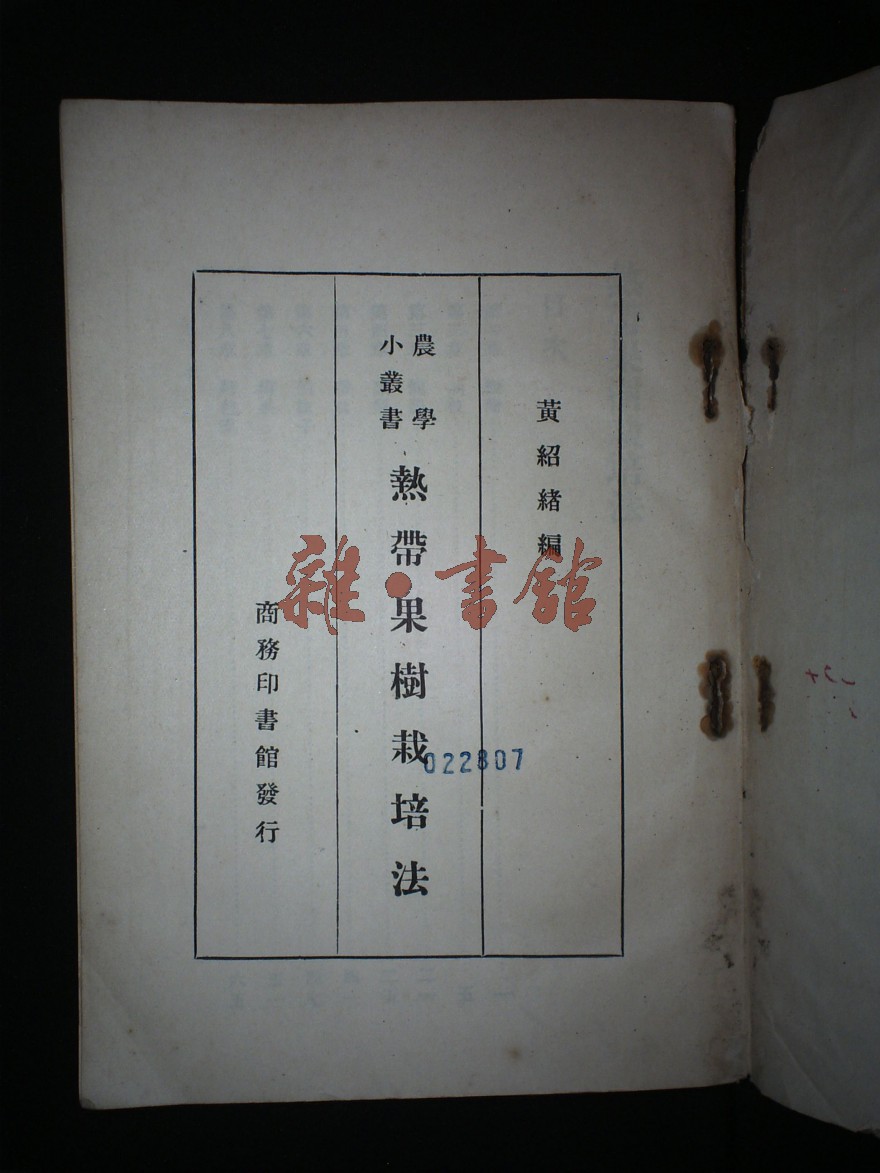 黃紹緒編
農學
小叢書
熱帶果樹栽培法
商務印書館發行
022807
雜·書館